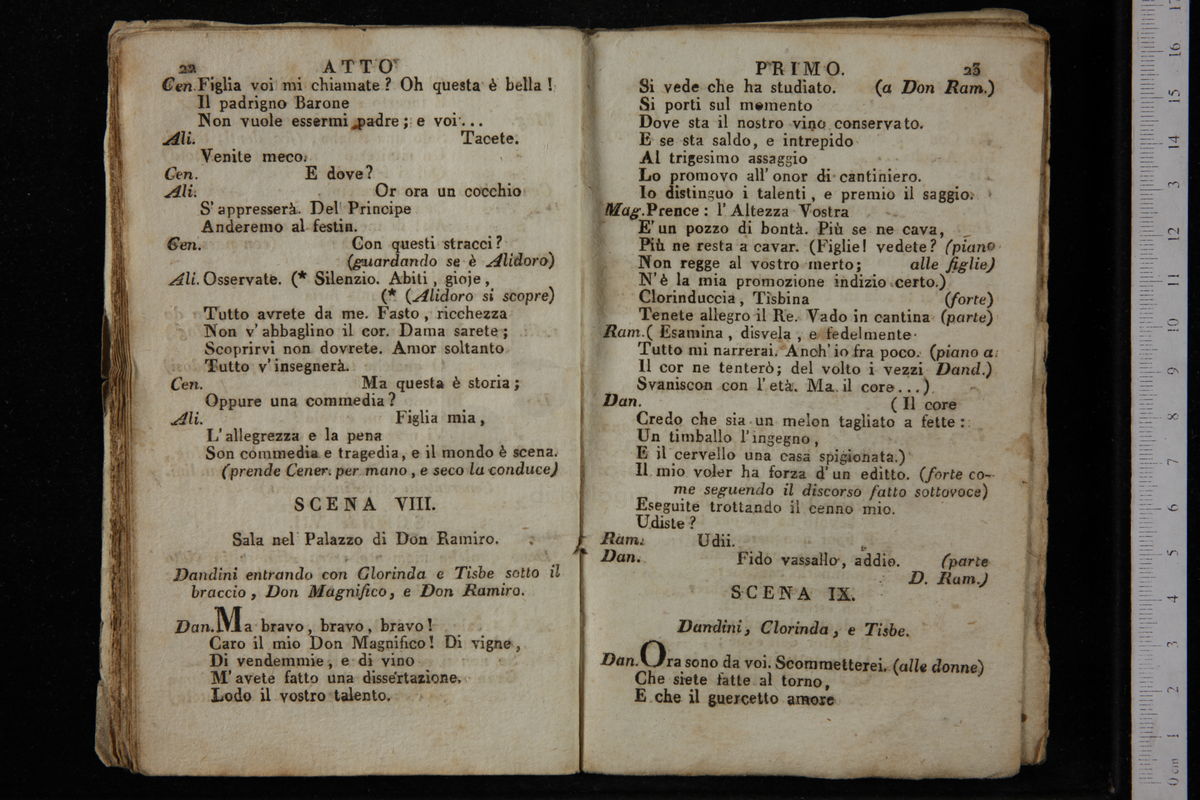 22 ATTO
Cen. Figlia voi mi chiamate? Oh questa è bella!
Il padrigno Barone
Non vuole essermi padre; e voi...
Ali. Tacete.
Venite meco.
Cen. E dove?
Ali. Or ora un cocchio
S' appresserà. Del Principe
Anderemo al festin.
Cen. Con questi stracci?
(guardando se è Alidoro)
Ali. Osservate. (* Silenzio. Abiti, gioje,
(* (Alidoro si scopre)
Tutto avrete da me. Fasto, ricchezza
Non v' abbaglino il cor. Dama sarete;
Scoprirvi non dovrete. Amor soltanto
Tutto v' insegnerà.
Cen. Ma questa è storia;
Oppure una commedia?
Ali. Figlia mia,
L' allegrezza e la pena
Son commedia e tragedia, e il mondo è scena.
(prende Cener. per mano, e seco la conduce)
SCENA VIII.
Sala nel Palazzo di Don Ramiro.
Dandini entrando con Clorinda e Tisbe sotto il
braccio, Don Magnifico, e Don Ramiro.
Dan. Ma bravo, bravo, bravo!
Caro il mio Don Magnifico! Di vigne,
Di vendemmie, e di vino
M' avete fatto una dissertazione.
Lodo il vostro talento.
PRIMO. 23
Si vede che ha studiato. (a Don Ram.)
Si porti sul momento
Dove sta il nostro vino conservato.
E se sta saldo, e intrepido
Al trigesimo assaggio
Lo promovo all' onor di cantiniero.
Io distinguo i talenti, e premio il saggio.
Mag. Prence: l' Altezza Vostra
E' un pozzo di bontà. Più se ne cava,
Più ne resta a cavar. (Figlie! vedete? (piano
Non regge al vostro merto; alle figlie)
N' è la mia promozione indizio certo.)
Clorinduccia, Tisbina (forte)
Tenete allegro il Re. Vado in cantina (parte)
Ram. ( Esamina, disvela, e fedelmente
Tutto mi narrerai. Anch' io fra poco. (piano a
Il cor ne tenterò; del volto i vezzi Dand.)
Svaniscon con l' età. Ma il core...)
Dan. ( Il core
Credo che sia un melon tagliato a fette:
Un timballo l' ingegno,
E il cervello una casa spigionata.)
Il mio voler ha forza d' un editto. (forte co-
me seguendo il discorso fatto sottovoce)
Eseguite trottando il cenno mio.
Udiste?
Ram. Udii.
Dan. Fido vassallo, addio. (parte
D. Ram.)
SCENA IX.
Dandini, Clorinda, e Tisbe.
Dan. Ora sono da voi. Scommetterei. (alle donne)
Che siete fatte al torno,
E che il guercetto amore
0 cm 1 2 3 4 5 6 7 8 9 10 11 12 13 14 15 16 17